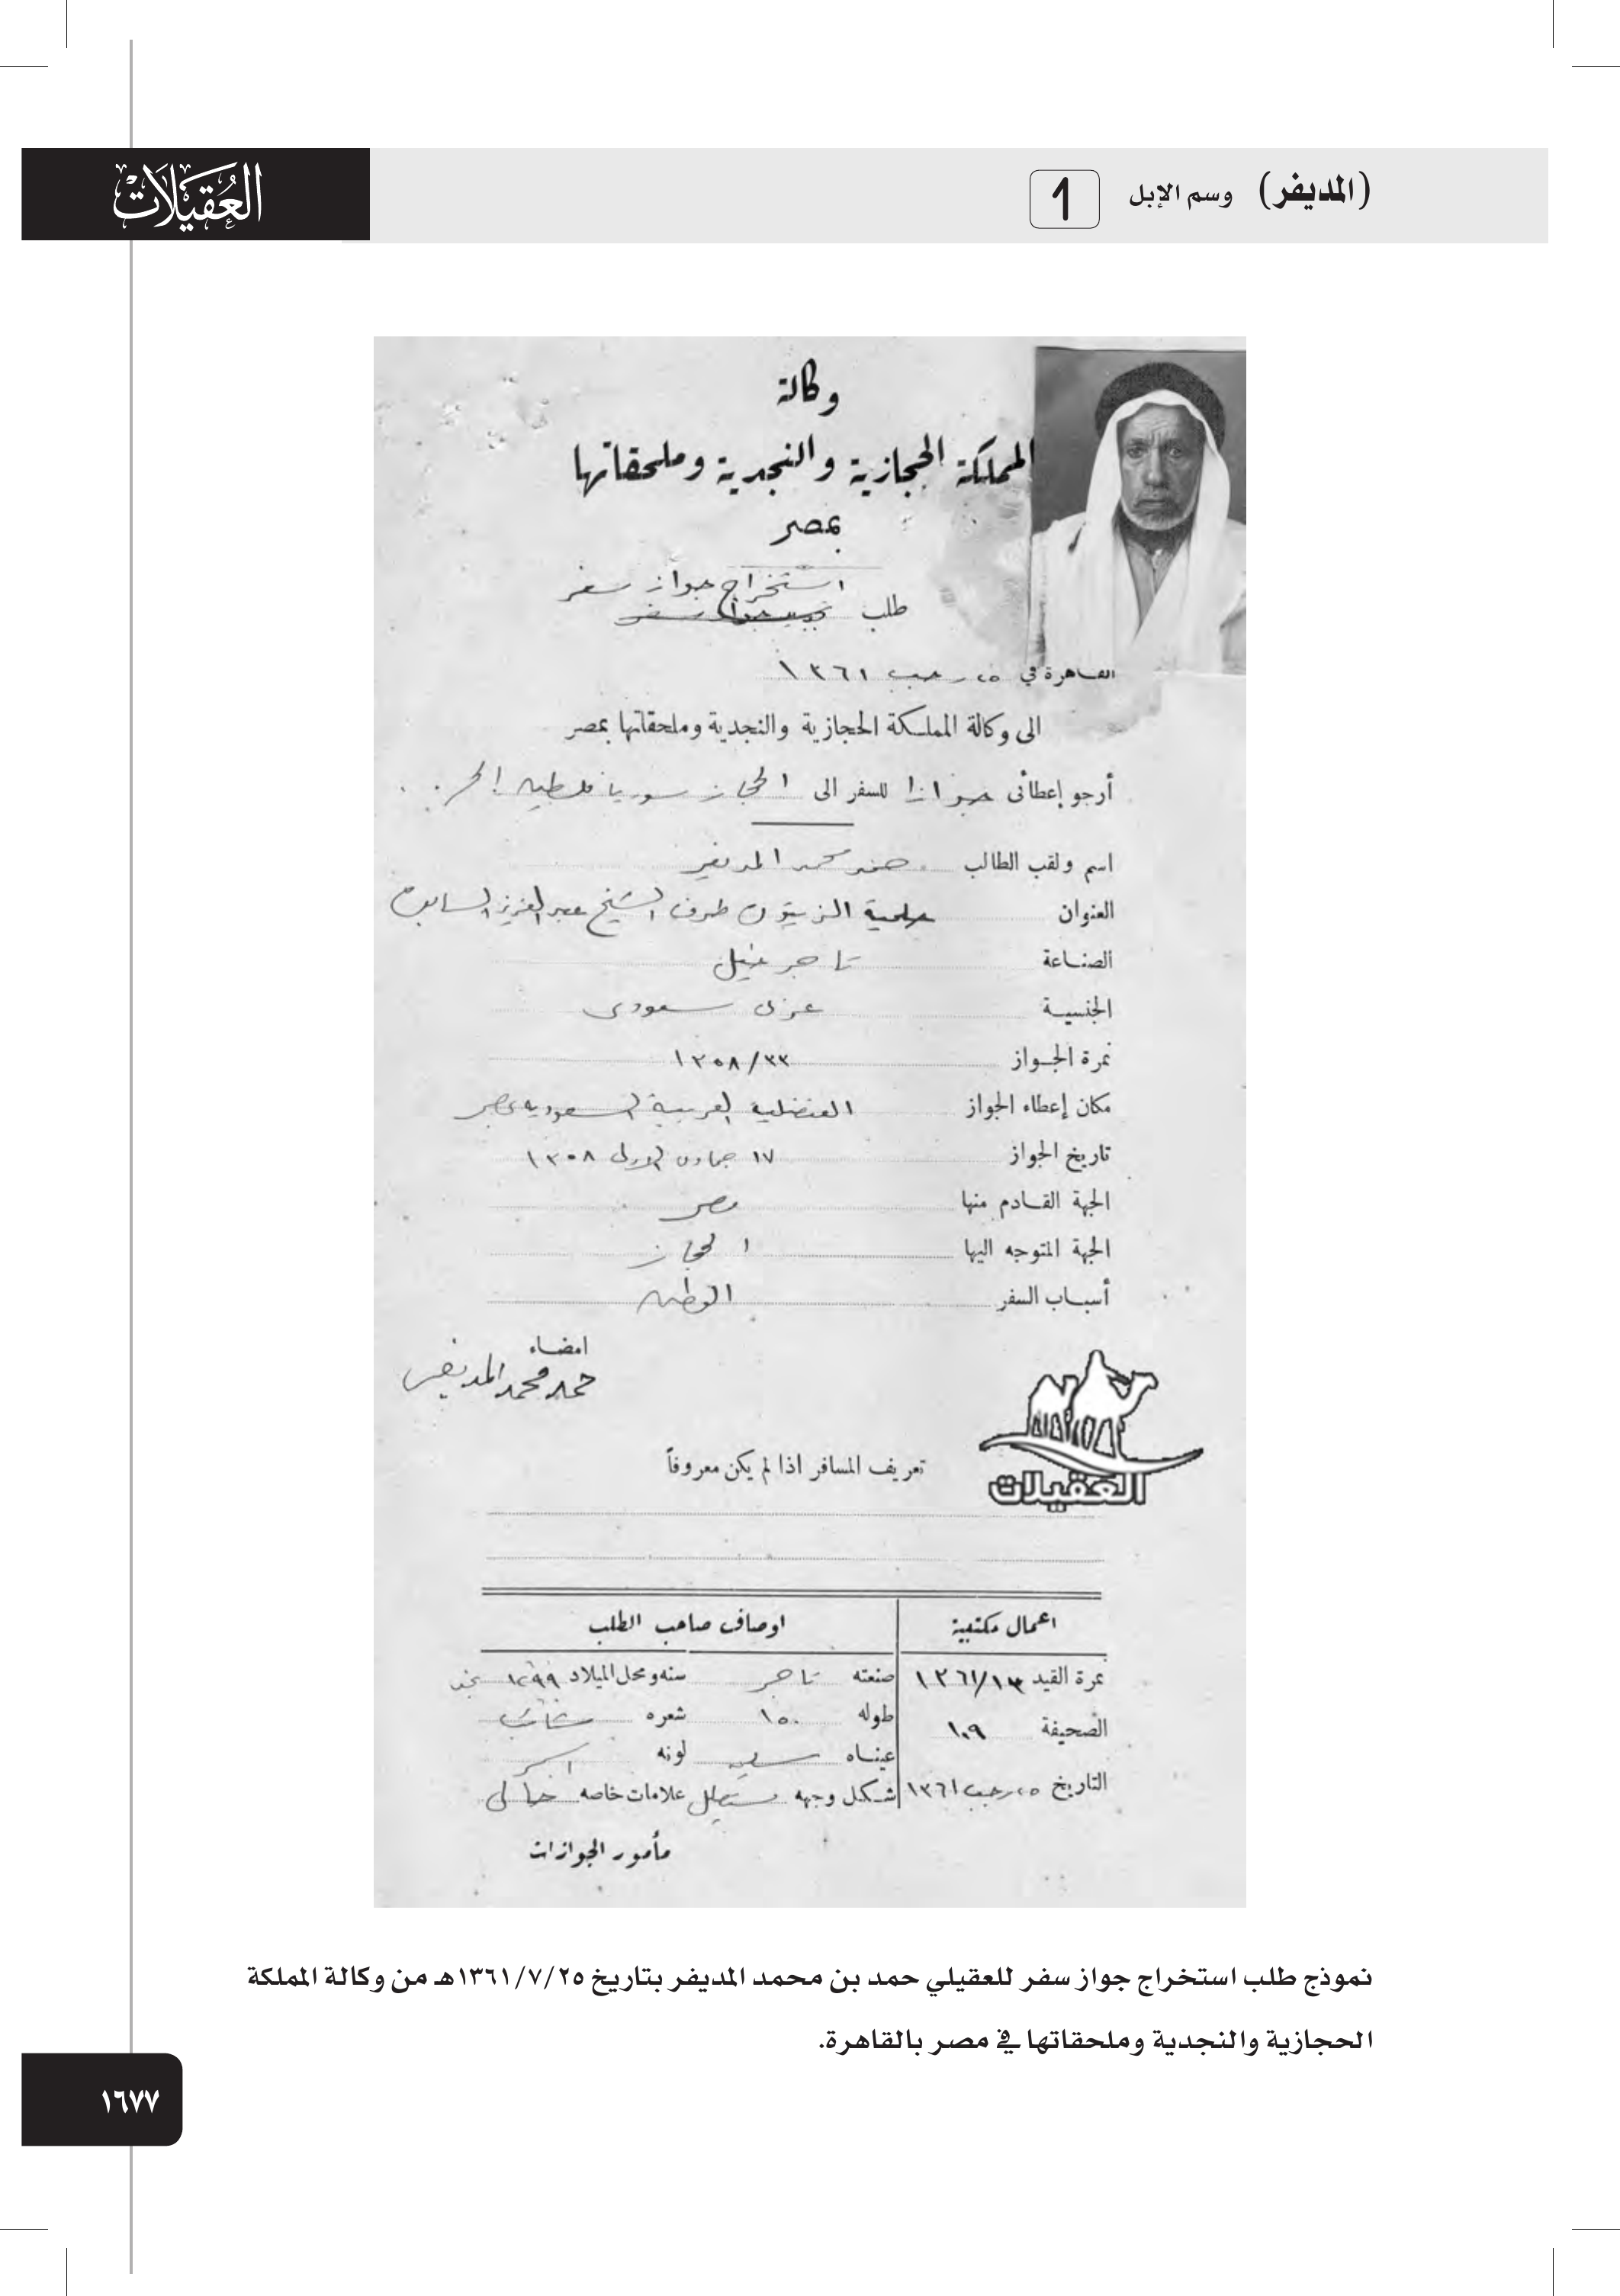 (المديفر) وسم الإبل 1
العُقَيْلَاتْ
وكالة
المملكة الحجازية والنجدية وملحقاتها
بمصر
استخراج جواز سفر
طلب
القاهرة في ٢٥ رجب ١٣٦١
الى وكالة المملكة الحجازية والنجدية وملحقاتها بمصر
أرجو إعطائى جوازا للسفر الى الحجاز سوريا فلسطين
اسم ولقب الطالب حمد محمد المديفر
العنوان حلمية الزيتون طرف الشيخ عبد العزيز السابق
الصناعة تاجر خيل
الجنسية عربى سعودى
نمرة الجواز ١٣٥٨/٣٣
مكان إعطاء الجواز القنصلية العربية السعودية بمصر
تاريخ الجواز ١٧ جمادى الاولى ١٣٥٨
الجهة القادم منها مصر
الجهة المتوجه اليها الحجاز
أسباب السفر
امضاء
حمد محمد المديفر
تعريف المسافر اذا لم يكن معروفاً
العقيلات
اعمال مكتبية اوصاف صاحب الطلب
نمرة القيد ١٣٦١/١٣ صنعته تاجر سنه ومحل الميلاد ١٢٩٩ نجد
الصحيفة ١٠٩ طوله ١٥٠ شعره شائب
عيناه لونه اسمر
التاريخ ٢٥ رجب ١٣٦١ شكل وجهه مستطيل علامات خاصه خالى
مأمور الجوازات
نموذج طلب استخراج جواز سفر للعقيلي حمد بن محمد المديفر بتاريخ ١٣٦١/٧/٢٥هـ من وكالة المملكة
الحجازية والنجدية وملحقاتها في مصر بالقاهرة.
١٦٧٧